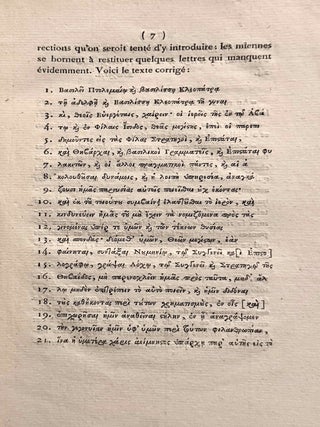 ( 7 )
rections qu'on seroit tenté d'y introduire: les miennes
se bornent à restituer quelques lettres qui manquent
évidemment. Voici le texte corrigé:
1. Βασιλεῖ Πτολεμαίῳ ϗ βασιλίσσῃ Κλεοπάτρᾳ
2. τῇ ἀδελφῇ ϗ Βασιλίσσῃ Κλεοπάτρᾳ τῇ γυναι
3. κὶ, Θεοῖς Εὐεργέταις, χαίρειν· οἱ ἱερεῖς τῆς ἐν τῷ Ἀϐά
4. τῳ ϗ ἐν Φίλαις Ἴσιδος, Θεᾶς μεγίσης, ἐπεὶ οἱ παρεπι
5. δημοῦντες εἰς τὰς Φίλας Στρατηγοὶ, ϗ Ἐπισάται,
6. καὶ Θηϐάρχαι, ϗ Βασιλικοὶ Γραμματεῖς, ϗ Ἐπισάται φυ
7. λακιτῶν ϗ οἱ ἄλλοι πραγματικοὶ πάντες, ϗ αἱ ἀ
8. κολουθοῦσαι δυνάμεις, ϗ ἡ λοιπὴ ὑπηρεσία, ἀναγκά
9. ζουσι ἡμᾶς παρουσίας αὐτοῖς ποιεῖσθαι οὐχ ἑκόντας·
10. καὶ ἐκ τοῦ τοιούτου συμϐαίνει ἐλαττοῦσθαι τὸ ἱερὸν, καὶ
11. κινδυνεύειν ἡμᾶς τοῦ μὴ ἔχειν τὰ νομιζόμενα πρὸς τὰς
12. γινομένας ὑπέρ τε ὑμῶν ϗ τῶν τέκνων θυσίας
13. καὶ σπονδάς· δεόμεθʼ ὑμῶν, Θεῶν μεγάλων, ἐὰν
14. φαίνηται, συντάξαι Νουμηνίῳ, τῷ Συγγενεῖ κα[ὶ Ἐπισο]
15. λογράφῳ, γράψαι Λόχῳ, τῷ Συγγενεῖ ϗ Στρατηγῷ τῆς
16. Θηϐαΐδος, μὴ παρενοχλεῖν ἡμᾶς πρὸς ταῦτα, μηδʼ ἄλ
17. λῳ μηδενὶ ἐπιτρέπειν τὸ αὐτὸ ποιεῖν, ϗ ἡμῖν διδόναι
18. τοὺς καθήκοντας περὶ τούτων χρηματισμοὺς, ἐν οἷς [καὶ]
19. ἐπιχωρῆσαι ἡμῖν ἀναθεῖναι σήλην, ἐν ᾗ ἀναγράψομεν
20. τὴν γεγονυῖαν ἡμῖν ὑφʼ ὑμῶν περὶ τούτων φιλανθρωπίαν,
21. ἵνα ἡ ὑμετέρα χάρις ἀείμνησος ὑπάρχῃ παρʼ αὐτῆς εἰς τὸ